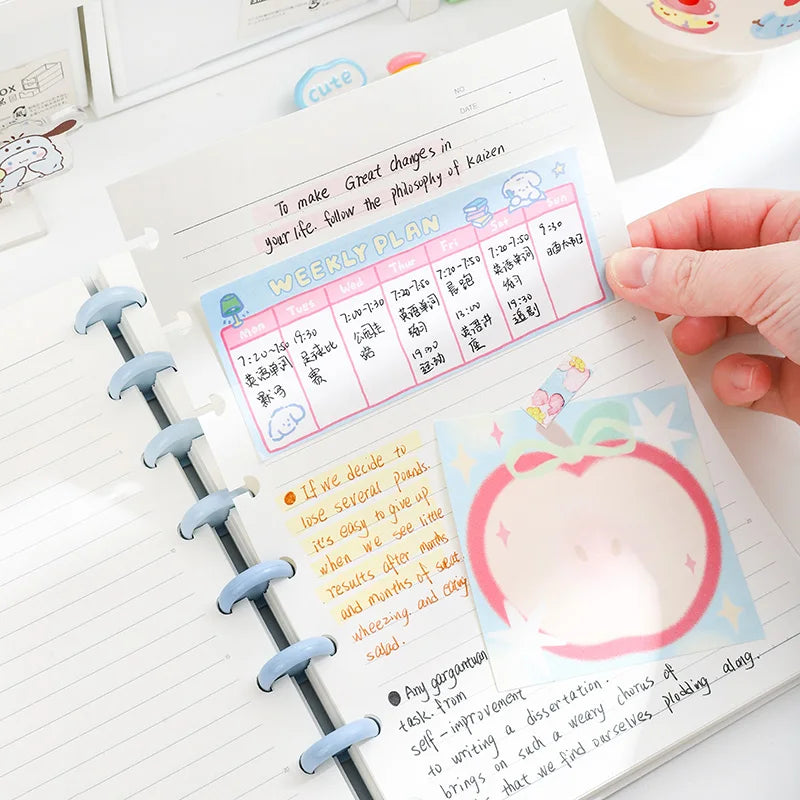 cute
NO.
DATE.
To make Great changes in
your life. follow the philosophy of kaizen
WEEKLY PLAN
Mon Tues Wed Thur Fri Sat Sun
7:20~7:50
英语单词
默写
19:30
足球比
赛
7:00-7:30
公园走
路
7:20-7:50
英语单词
练习
19:00
运动
7:20-7:50
晨跑
13:00
英语讲
座
7:20-7:50
英语单词
练习
19:30
追剧
9:30
If we decide to
lose several pounds.
it's easy to give up
when we see little
results after months
and months of sweat.
wheezing. and eating
salad.
Any gargantuan
task. from
self-improvement
to writing a dissertation.
brings on such a weary chorus of
that we find ourselves plodding along.